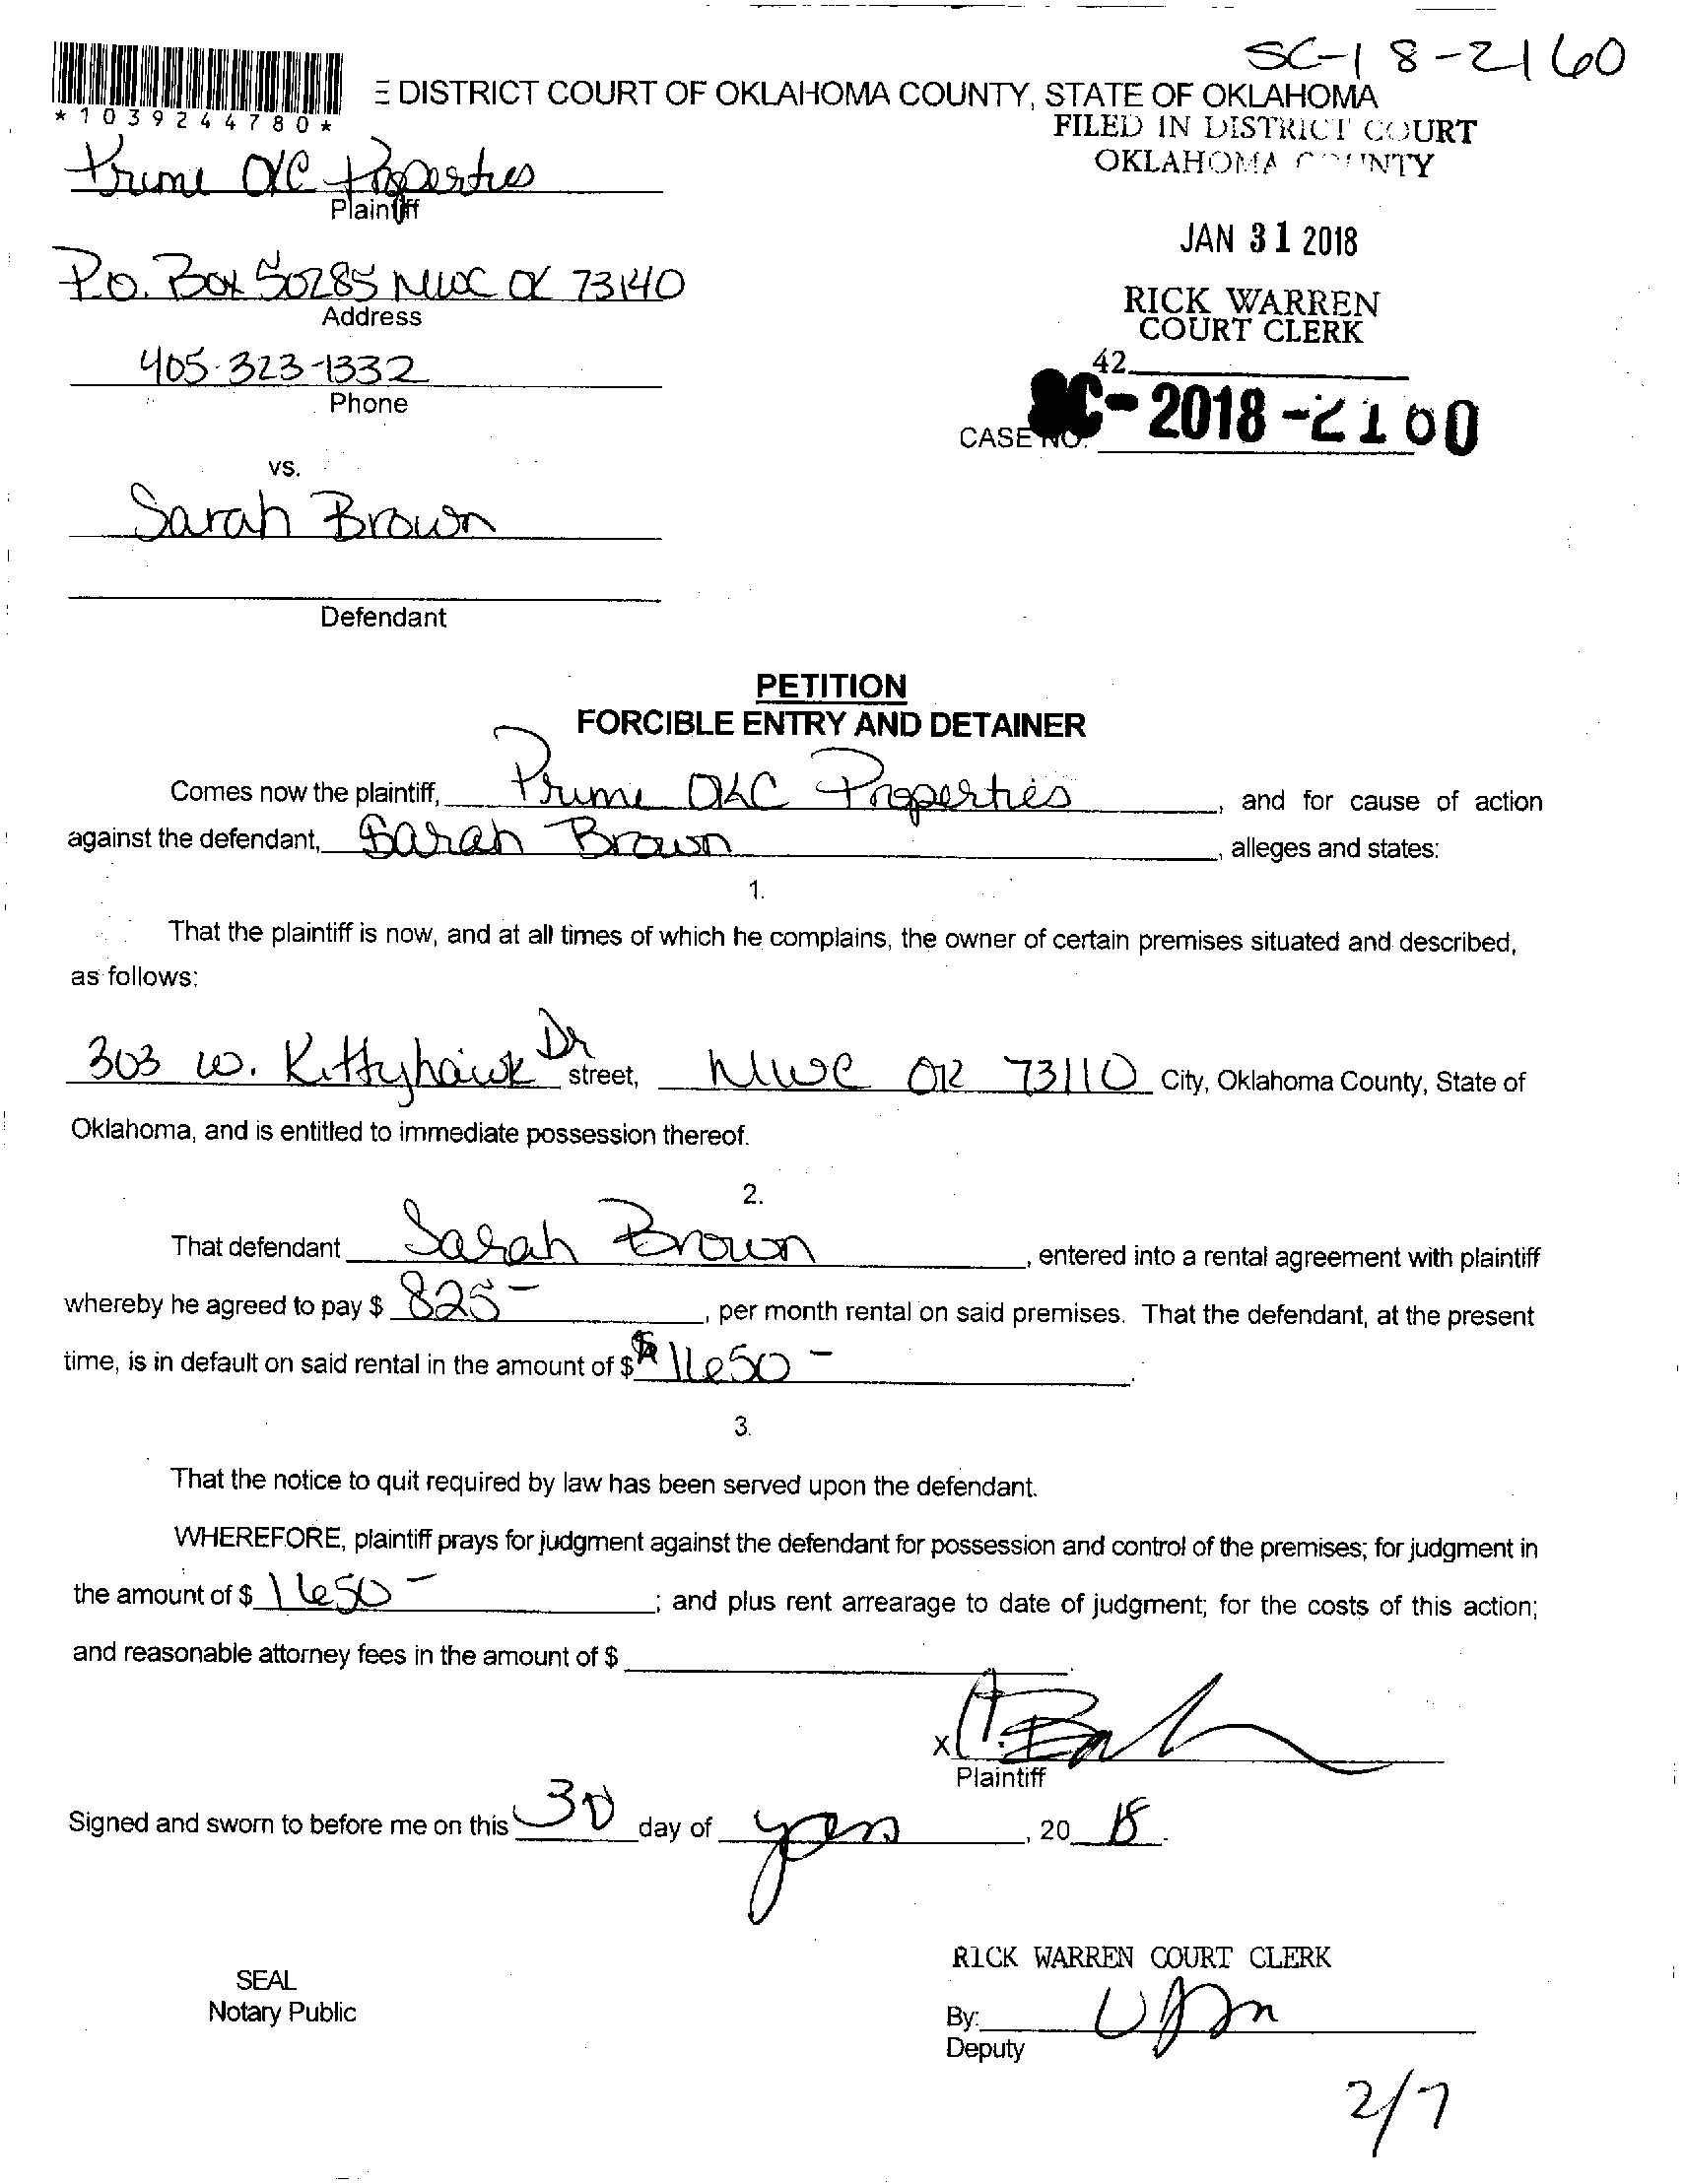 SC-18-2160
E DISTRICT COURT OF OKLAHOMA COUNTY, STATE OF OKLAHOMA
*1039244780*
FILED IN DISTRICT COURT
OKLAHOMA COUNTY
Prime OKC Properties
Plaintiff
JAN 31 2018
P.O. Box 50285 MWC OK 73140
Address
RICK WARREN
COURT CLERK
405-323-1332
Phone
42
CASE NO. SC-2018-2160
vs.
Sarah Brown
Defendant
PETITION
FORCIBLE ENTRY AND DETAINER
Comes now the plaintiff, Prime OKC Properties, and for cause of action
against the defendant, Sarah Brown, alleges and states:
1.
That the plaintiff is now, and at all times of which he complains, the owner of certain premises situated and described,
as follows:
303 W. Kittyhawk Dr street, MWC OK 73110 City, Oklahoma County, State of
Oklahoma, and is entitled to immediate possession thereof.
2.
That defendant Sarah Brown, entered into a rental agreement with plaintiff
whereby he agreed to pay $ 825-, per month rental on said premises. That the defendant, at the present
time, is in default on said rental in the amount of $ 1650-.
3.
That the notice to quit required by law has been served upon the defendant.
WHEREFORE, plaintiff prays for judgment against the defendant for possession and control of the premises; for judgment in
the amount of $ 1650-; and plus rent arrearage to date of judgment; for the costs of this action;
and reasonable attorney fees in the amount of $
X
Plaintiff
Signed and sworn to before me on this 30 day of Jan, 2018.
RICK WARREN COURT CLERK
SEAL
Notary Public
By:
Deputy
2/7